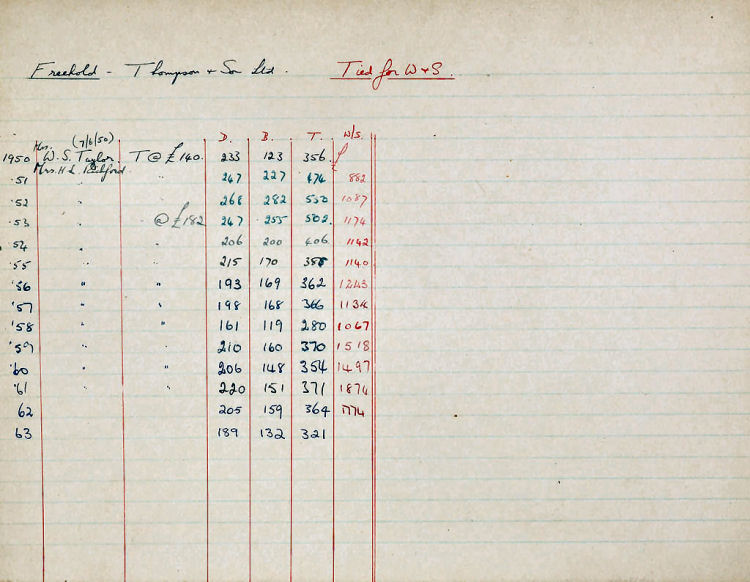 Freehold - Thompson & Son Ltd. Tied for W & S.
D. B. T. W/S.
Mrs. (7/6/50)
1950 W. S. Taylor. T @ £140. 233 123 356 £
Mrs. H L
'51 " " 247 227 474 882
'52 " " 268 282 550 1087
'53 " @ £182 247 255 502. 1174
54 " " 206 200 406 1142
'55 " " 215 170 385 1140
'56 " " 193 169 362 1243
'57 " " 198 168 366 1134
'58 " " 161 119 280 1067
'59 " " 210 160 370 1518
'60 " " 206 148 354 1497
'61 " " 220 151 371 1874
62 205 159 364 1774
63 189 132 321